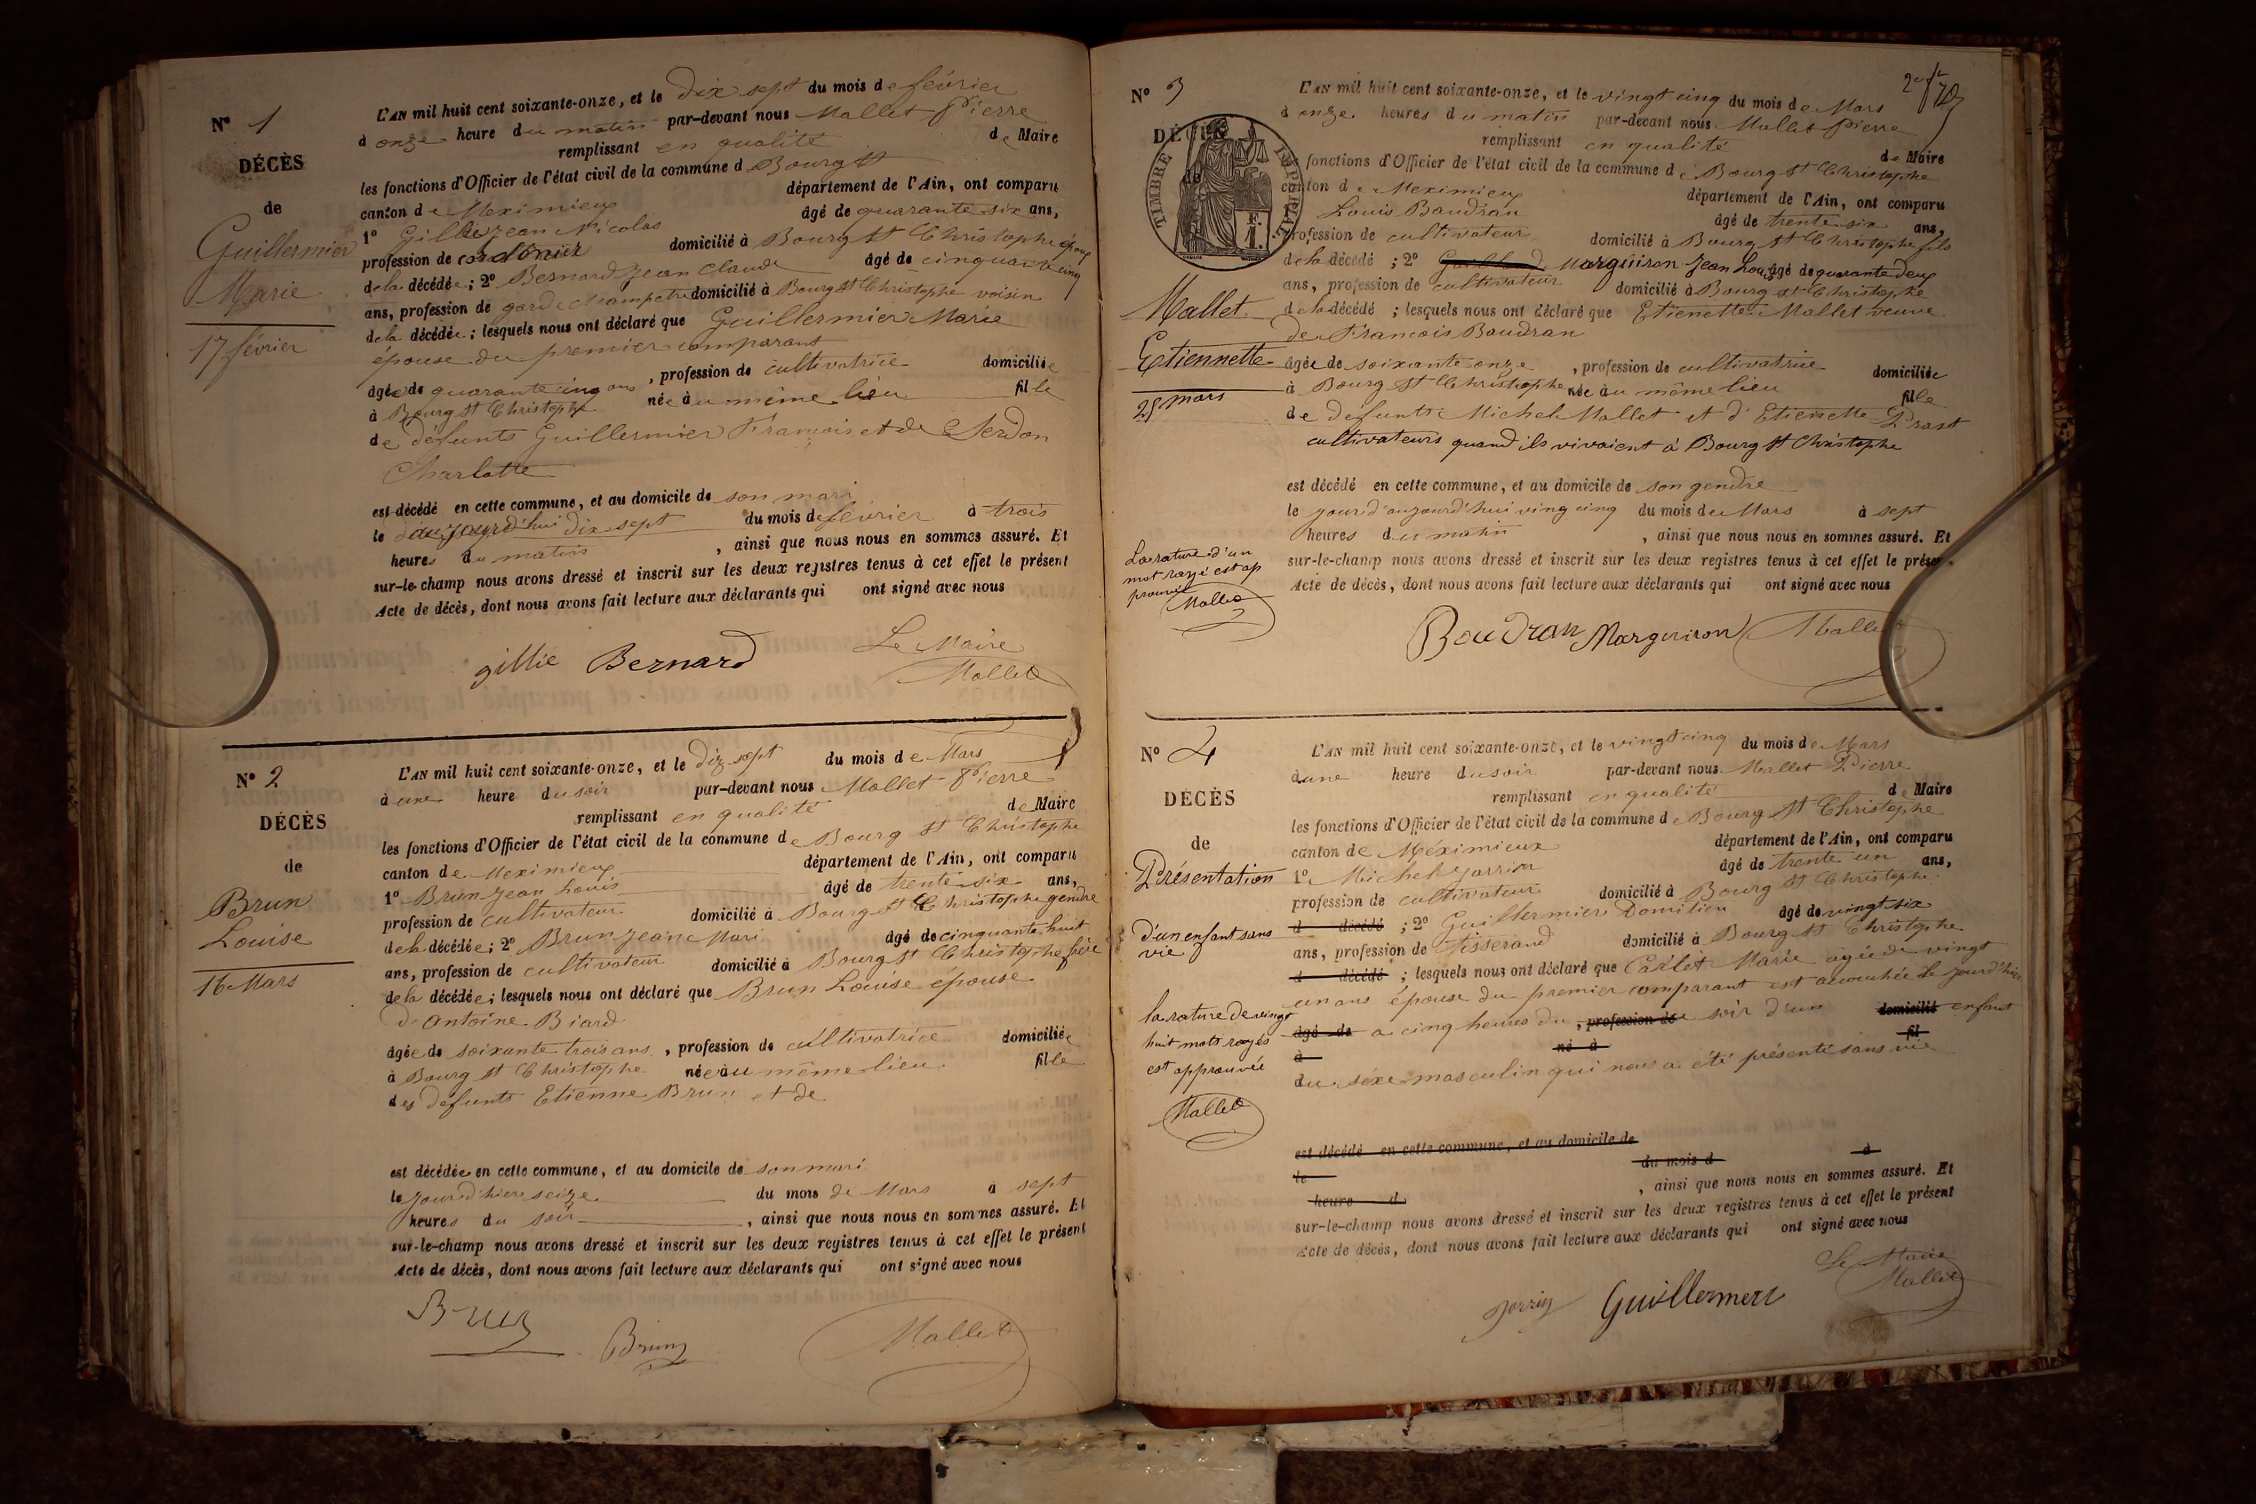 N° 1
DÉCÈS
de
Guillermier
Marie
17 février
L'AN mil huit cent soixante-onze, et le dix sept du mois de février
à onze heure du matin par-devant nous Mallet Pierre
remplissant en qualité de Maire
les fonctions d'Officier de l'état civil de la commune d Bourg St
canton de Meximieux département de l'Ain, ont comparu
1° Jean Nicolas âgé de quarante six ans,
profession de cordonier domicilié à Bourg St Christophe époux
de la décédée ; 2° Bernard Jean Claude âgé de cinquante cinq
ans, profession de garde champetre domicilié à Bourg St Christophe voisin
de la décédée ; lesquels nous ont déclaré que Guillermier Marie
épouse du premier comparant
âgée de quarante cinq ans, profession de cultivatrice domiciliée
à Bourg St Christophe née au même lieu fille
de défunts Guillermier François et de Serdon
Charlotte
est décédé en cette commune, et au domicile de son mari
le aujourd'hui dix sept du mois de février à trois
heures du matin, ainsi que nous nous en sommes assuré. Et
sur-le-champ nous avons dressé et inscrit sur les deux registres tenus à cet effet le présent
Acte de décès, dont nous avons fait lecture aux déclarants qui ont signé avec nous
gillie Bernard Le Maire
Mallet
N° 2
DÉCÈS
de
Brun
Louise
16 Mars
L'AN mil huit cent soixante-onze, et le dix sept du mois de Mars
à une heure du soir par-devant nous Mallet Pierre
remplissant en qualité de Maire
les fonctions d'Officier de l'état civil de la commune de Bourg St Christophe
canton de Meximieux département de l'Ain, ont comparu
1° Brun Jean Louis âgé de trente six ans,
profession de cultivateur domicilié à Bourg St Christophe gendre
de la décédée ; 2° Brun Jean Mari âgé de cinquante huit
ans, profession de cultivateur domicilié à Bourg St Christophe frère
de la décédée ; lesquels nous ont déclaré que Brun Louise épouse
d'Antoine Biard
âgée de soixante trois ans, profession de cultivatrice domiciliée
à Bourg St Christophe née au même lieu fille
des defunts Etienne Brun et de
est décédée en cette commune, et au domicile de son mari
le jour d'hier seize du mois de Mars à sept
heures du soir, ainsi que nous nous en sommes assuré. Et
sur-le-champ nous avons dressé et inscrit sur les deux registres tenus à cet effet le présent
Acte de décès, dont nous avons fait lecture aux déclarants qui ont signé avec nous
Brun Brun Mallet
2e f
N° 3
DÉCÈS
TIMBRE IMPÉRIAL
Mallet
Etiennette
25 mars
La rature d'un
mot rayé est ap
prouvé
Mallet
L'AN mil huit cent soixante-onze, et le vingt cinq du mois de Mars
à onze heures du matin par-devant nous Mallet Pierre
remplissant en qualité de Maire
les fonctions d'Officier de l'état civil de la commune de Bourg St Christophe
canton de Meximieux département de l'Ain, ont comparu
Louis Baudran âgé de trente six ans,
profession de cultivateur domicilié à Bourg St Christophe fils
de la décédé ; 2° Marguiron Jean Louis âgé de quarante deux
ans, profession de cultivateur domicilié à Bourg St Christophe
de la décédé ; lesquels nous ont déclaré que Etienette Mallet veuve
de François Baudran
âgée de soixante onze, profession de cultivatrice domiciliée
à Bourg St Christophe née au même lieu fille
de defunts Michel Mallet et d'Etienette Prast
cultivateurs quand ils vivaient à Bourg St Christophe
est décédé en cette commune, et au domicile de son gendre
le jour d'aujourd'hui ving cinq du mois de Mars à sept
heures du matin, ainsi que nous nous en sommes assuré. Et
sur-le-champ nous avons dressé et inscrit sur les deux registres tenus à cet effet le présent
Acte de décès, dont nous avons fait lecture aux déclarants qui ont signé avec nous
Boudran Marguiron Mallet
N° 4
DÉCÈS
de
Présentation
d'un enfant sans
vie
la rature de vingt
huit mots rayés
est approuvée
Mallet
L'AN mil huit cent soixante-onze, et le vingt cinq du mois de Mars
à une heure du soir par-devant nous Mallet Pierre
remplissant en qualité de Maire
les fonctions d'Officier de l'état civil de la commune de Bourg St Christophe
canton de Méximieux département de l'Ain, ont comparu
1° Michel Jarrin âgé de trente un ans,
profession de cultivateur domicilié à Bourg St Christophe
d décédé ; 2° Guillermier Domitien âgé de vingt six
ans, profession de Tisserand domicilié à Bourg St Christophe
d décédé ; lesquels nous ont déclaré que Carlet Marie agée de vingt
un ans épouse du premier comparant est accouchée le jour d'hier
âgé de a cinq heures du, profession de soir d'un domicilié enfant
à né à fil
du séxe masculin qui nous a été présenté sans vie
est décédé en cette commune, et au domicile de
le du mois d à
heure d, ainsi que nous nous en sommes assuré. Et
sur-le-champ nous avons dressé et inscrit sur les deux registres tenus à cet effet le présent
Acte de décès, dont nous avons fait lecture aux déclarants qui ont signé avec nous
Le Maire
Jarrin Guillermeri Mallet